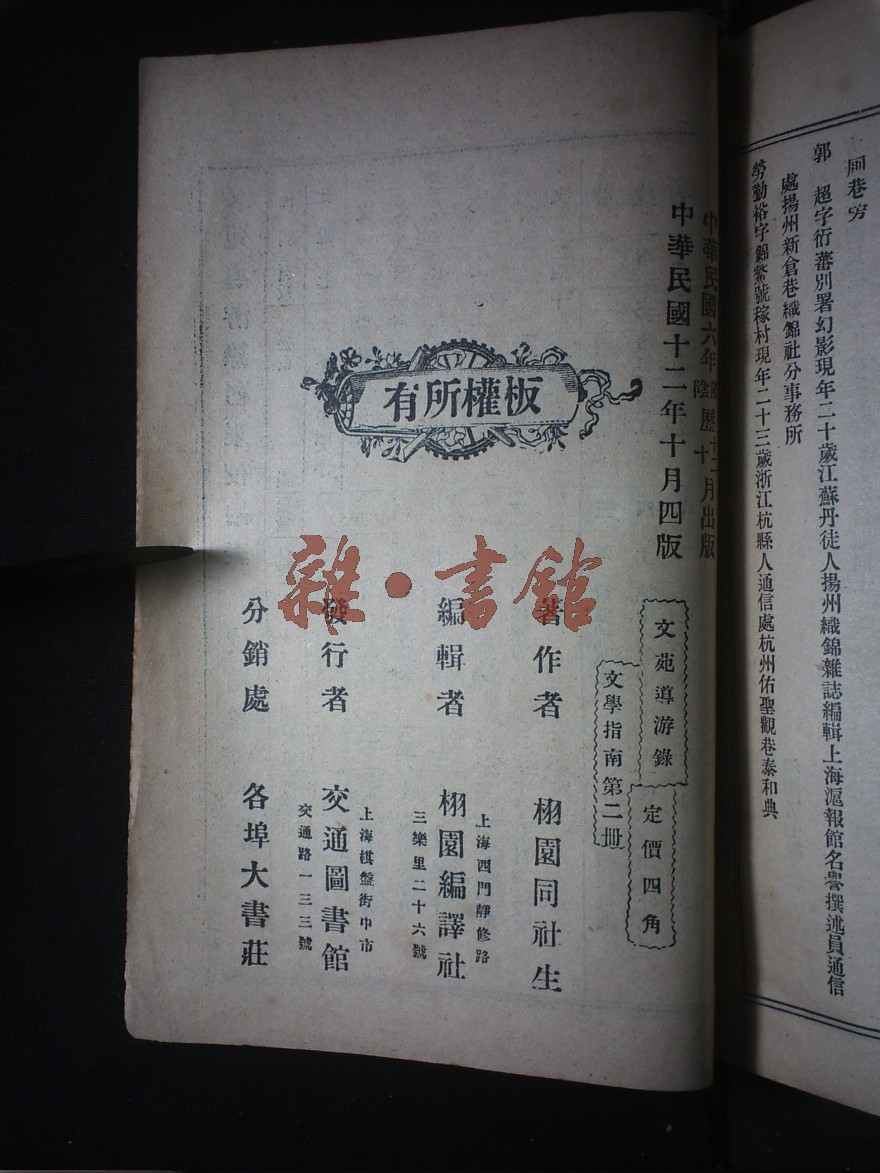 巷旁
郭　超字衍蕃別署幻影現年二十歲江蘇丹徒人揚州織錦雜誌編輯上海滬報館名譽撰述員通信
處揚州新倉巷織錦社分事務所
勞勤裕字錦鰲號稼村現年二十三歲浙江杭縣人通信處杭州佑聖觀巷泰和典
中華民國六年陽陰歷十二十月出版
中華民國十二年十月四版
文苑導游錄
定價四角
文學指南第二冊
板權所有
著作者　栩園同社生
編輯者　栩園編譯社
上海西門靜修路
三樂里二十六號
發行者　交通圖書館
上海棋盤街中市
交通路一三三號
分銷處　各埠大書莊
雜·書館